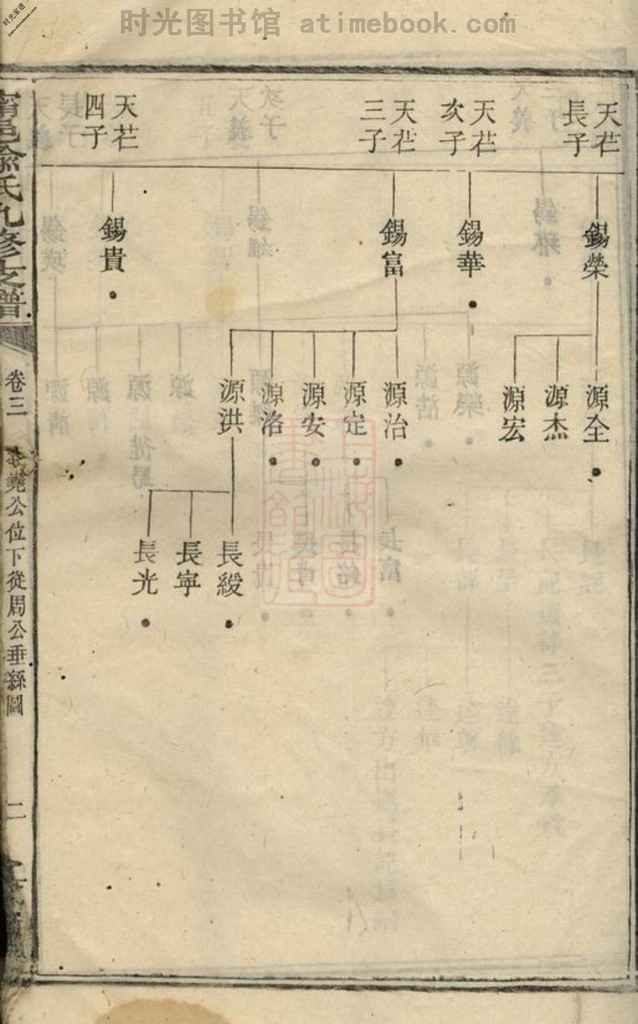 时光图书馆 atimebook.com
天芢
長子
錫榮
源全
源杰
源宏
天芢
次子
錫華
天芢
三子
錫富
源治
源定
源安
源洛
源洪
長綬
長寧
長光
天芢
四子
錫貴
甯邑俞氏九修支譜
卷三
公位下從周公垂絲圖
二